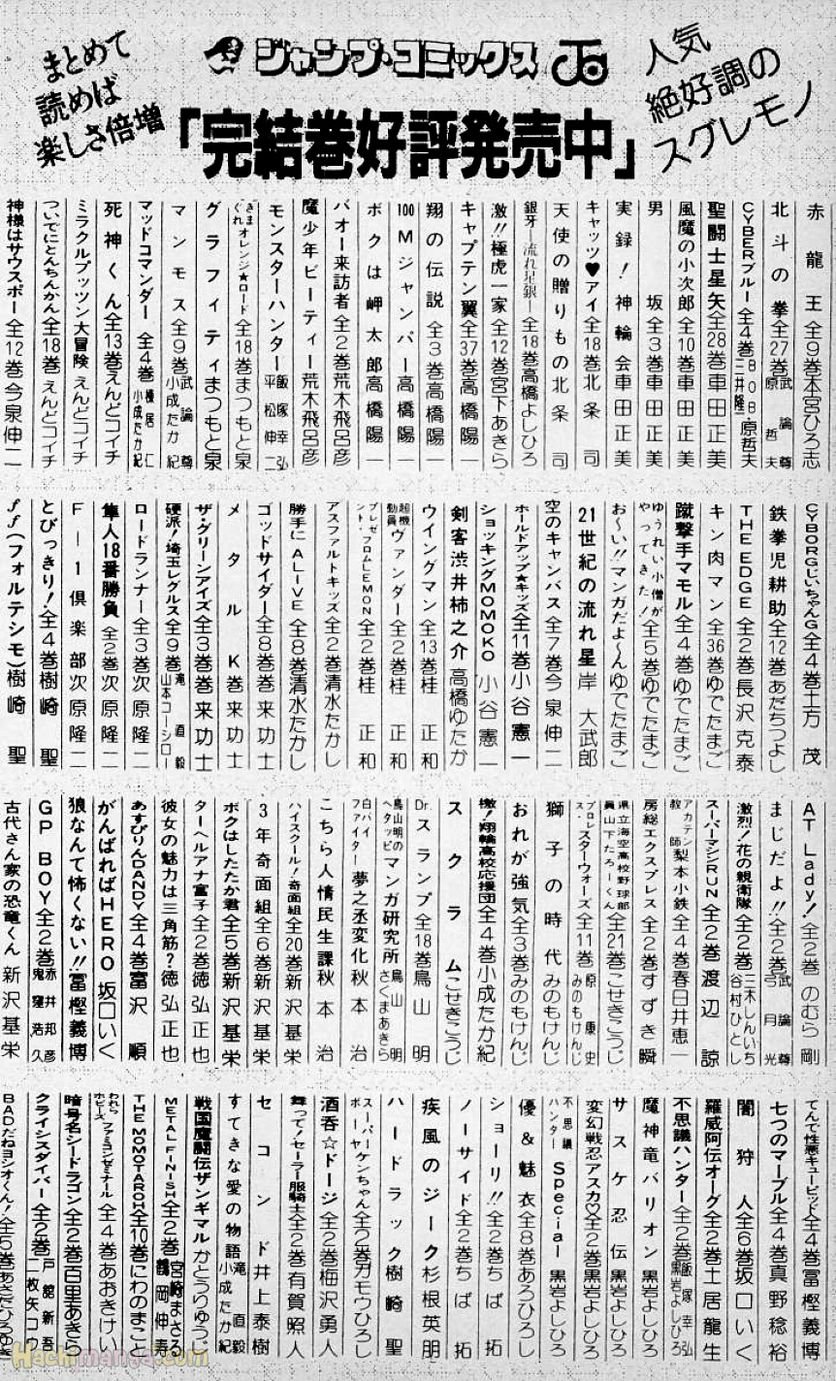 まとめて
読めば
楽しさ倍増
ジャンプ・コミックス
人気
絶好調の
スグレモノ
「完結巻好評発売中」
赤龍王 全9巻 本宮ひろ志
北斗の拳 全27巻 武論尊 原哲夫
CYBERブルー 全4巻 BOB・原哲夫 三井隆一
聖闘士星矢 全28巻 車田正美
風魔の小次郎 全10巻 車田正美
男坂 全3巻 車田正美
実録!神輪会 車田正美
キャッツ♥アイ 全18巻 北条司
天使の贈りもの 北条司
銀牙―流れ星銀― 全18巻 高橋よしひろ
激!!極虎一家 全12巻 宮下あきら
キャプテン翼 全37巻 高橋陽一
翔の伝説 全3巻 高橋陽一
100Mジャンパー 高橋陽一
ボクは岬太郎 高橋陽一
バオー来訪者 全2巻 荒木飛呂彦
魔少年ビーティー 荒木飛呂彦
モンスターハンター 飯塚幸弘 平松伸二
きまぐれオレンジ★ロード 全18巻 まつもと泉
グラフィティ まつもと泉
マンモス 全9巻 武論尊 小成たか紀
マッドコマンダー 全4巻 榛居仁 小成たか紀
死神くん 全13巻 えんどコイチ
ミラクルプッツン大冒険 えんどコイチ
ついでにとんちんかん 全18巻 えんどコイチ
神様はサウスポー 全12巻 今泉伸二
CYBORGじいちゃんG 全4巻 土方茂
鉄拳児耕助 全12巻 あだちつよし
THE EDGE 全2巻 長沢克泰
キン肉マン 全36巻 ゆでたまご
蹴撃手マモル 全4巻 ゆでたまご
ゆうれい小僧がやってきた! 全5巻 ゆでたまご
お〜い!!マンガだよ〜ん ゆでたまご
21世紀の流れ星 岸大武郎
空のキャンバス 全7巻 今泉伸二
ホールドアップ★キッズ 全11巻 小谷憲一
ショッキングMOMOKO 小谷憲一
剣客渋井柿之介 高橋ゆたか
ウイングマン 全13巻 桂正和
超機動員ヴァンダー 全2巻 桂正和
プレゼント・フロムLEMON 全2巻 桂正和
アスファルトキッズ 全2巻 清水たかし
勝手にALIVE 全8巻 清水たかし
ゴッドサイダー 全8巻 巻来功士
メタルK 巻来功士
ザ・グリーンアイズ 全3巻 巻来功士
硬派!埼玉レグルス 全9巻 滝直毅 山本コーシロー
ロードランナー 全3巻 次原隆二
隼人18番勝負 全2巻 次原隆二
F―1倶楽部 次原隆二
とびっきり! 全4巻 樹崎聖
ff(フォルテシモ) 樹崎聖
AT Lady! 全2巻 のむら剛
まじだよ!! 全2巻 武論尊 弓月光
激烈!花の親衛隊 全2巻 三木しんいち 谷村ひとし
スーパーマシンRUN 全2巻 渡辺諒
アカテン教師 梨本小鉄 全4巻 春日井恵一
房総エクスプレス 全2巻 すずき瞬
県立海空高校野球部員山下たろーくん 全21巻 こせきこうじ
プロレス・スターウォーズ 全11巻 原康史 みのもけんじ
獅子の時代 みのもけんじ
おれが強気 全3巻 みのもけんじ
檄!翔輪高校応援団 全4巻 小成たか紀
スクラム こせきこうじ
Dr.スランプ 全18巻 鳥山明
鳥山明のヘタッピマンガ研究所 鳥山明 さくまあきら
白バイファイター 夢之丞変化 秋本治
こちら人情民生課 秋本治
ハイスクール!奇面組 全20巻 新沢基栄
3年奇面組 全6巻 新沢基栄
ボクはしたたか君 全5巻 新沢基栄
ターヘルアナ富子 全2巻 徳弘正也
彼女の魅力は三角筋? 徳弘正也
あすぴりんDANDY 全4巻 富沢順
がんばればHERO 坂口いく
狼なんて怖くない!! 冨樫義博
GP BOY 全2巻 赤井邦彦 鬼窪浩久
古代さん家の恐竜くん 新沢基栄
てんで性悪キューピッド 全4巻 冨樫義博
七つのマーブル 全4巻 真野稔裕
闇狩人 全6巻 坂口いく
羅威阿伝オーグ 全2巻 土居龍生
不思議ハンター 全2巻 飯塚幸弘 黒岩よしひろ
魔神竜バリオン 黒岩よしひろ
サスケ忍伝 黒岩よしひろ
変幻戦忍アスカ♡ 全2巻 黒岩よしひろ
不思議ハンターSpecial 黒岩よしひろ
優&魅衣 全8巻 あろひろし
ショーリ!! 全2巻 ちば拓
ノーサイド 全2巻 ちば拓
疾風のジーク 杉根英朋
ハードラック 樹崎聖
スーパーボーヤケンちゃん 全2巻 ガモウひろし
酒呑☆ドージ 全2巻 梅沢勇人
舞って!セーラー服騎士 全2巻 有賀照人
セコンド 井上泰樹
すてきな愛の物語 滝直毅 小成たか紀
戦国魔闘伝ザンギマル かとうりゅうじ
METAL FINISH 全2巻 宮崎まさる 鶴岡伸寿
THE MOMOTAROH 全10巻 にわのまこと
われらホビーズファミコンゼミナール 全4巻 あおきけい
暗号名シードラゴン 全2巻 百里あきら
クライシスダイバー 全2巻 戸舘新吾 二枚矢コウ
BADだねヨシオくん! 全5巻
Hachimanga.com